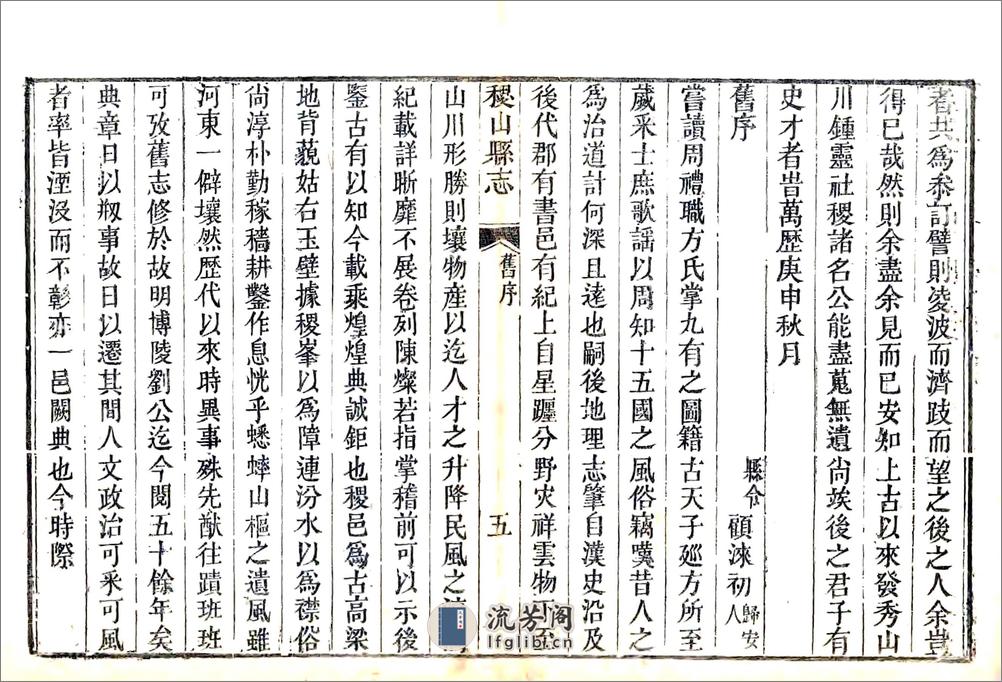 者共為叅訂譬則凌波而濟跂而望之後之人余豈
得已哉然則余盡余見而已安知上古以來發秀山
川鍾靈社稷諸名公能盡蒐無遺尚竢後之君子有
史才者旹萬歷庚申秋月
舊序 縣令 顧涞初 歸安人
嘗讀周禮職方氏掌九有之圖籍古天子廵方所至
歲采士庶歌謡以周知十五國之風俗竊嘆昔人之
為治道計何深且遠也嗣後地理志肇自漢史沿及
後代郡有書邑有紀上自星躔分野灾祥雲物下至
稷山縣志 舊序 五
山川形勝則壤物産以迄人才之升降民風之
紀載詳晰靡不展卷列陳燦若指掌稽前可以示後
鑒古有以知今載乘煌煌典誠鉅也稷邑為古高梁
地背藐姑右玉壁據稷峯以為障連汾水以為襟俗
尚淳朴勤稼穡耕鑿作息恍乎蟋蟀山樞之遺風雖
河東一僻壤然歷代以來時異事殊先猷往蹟班班
可攷舊志修於故明博陵劉公迄今閱五十餘年矣
典章日以剏事故日以遷其間人文政治可釆可風
者率皆湮沒而不彰亦一邑闕典也今時際
流芳阁
lfglib.cn